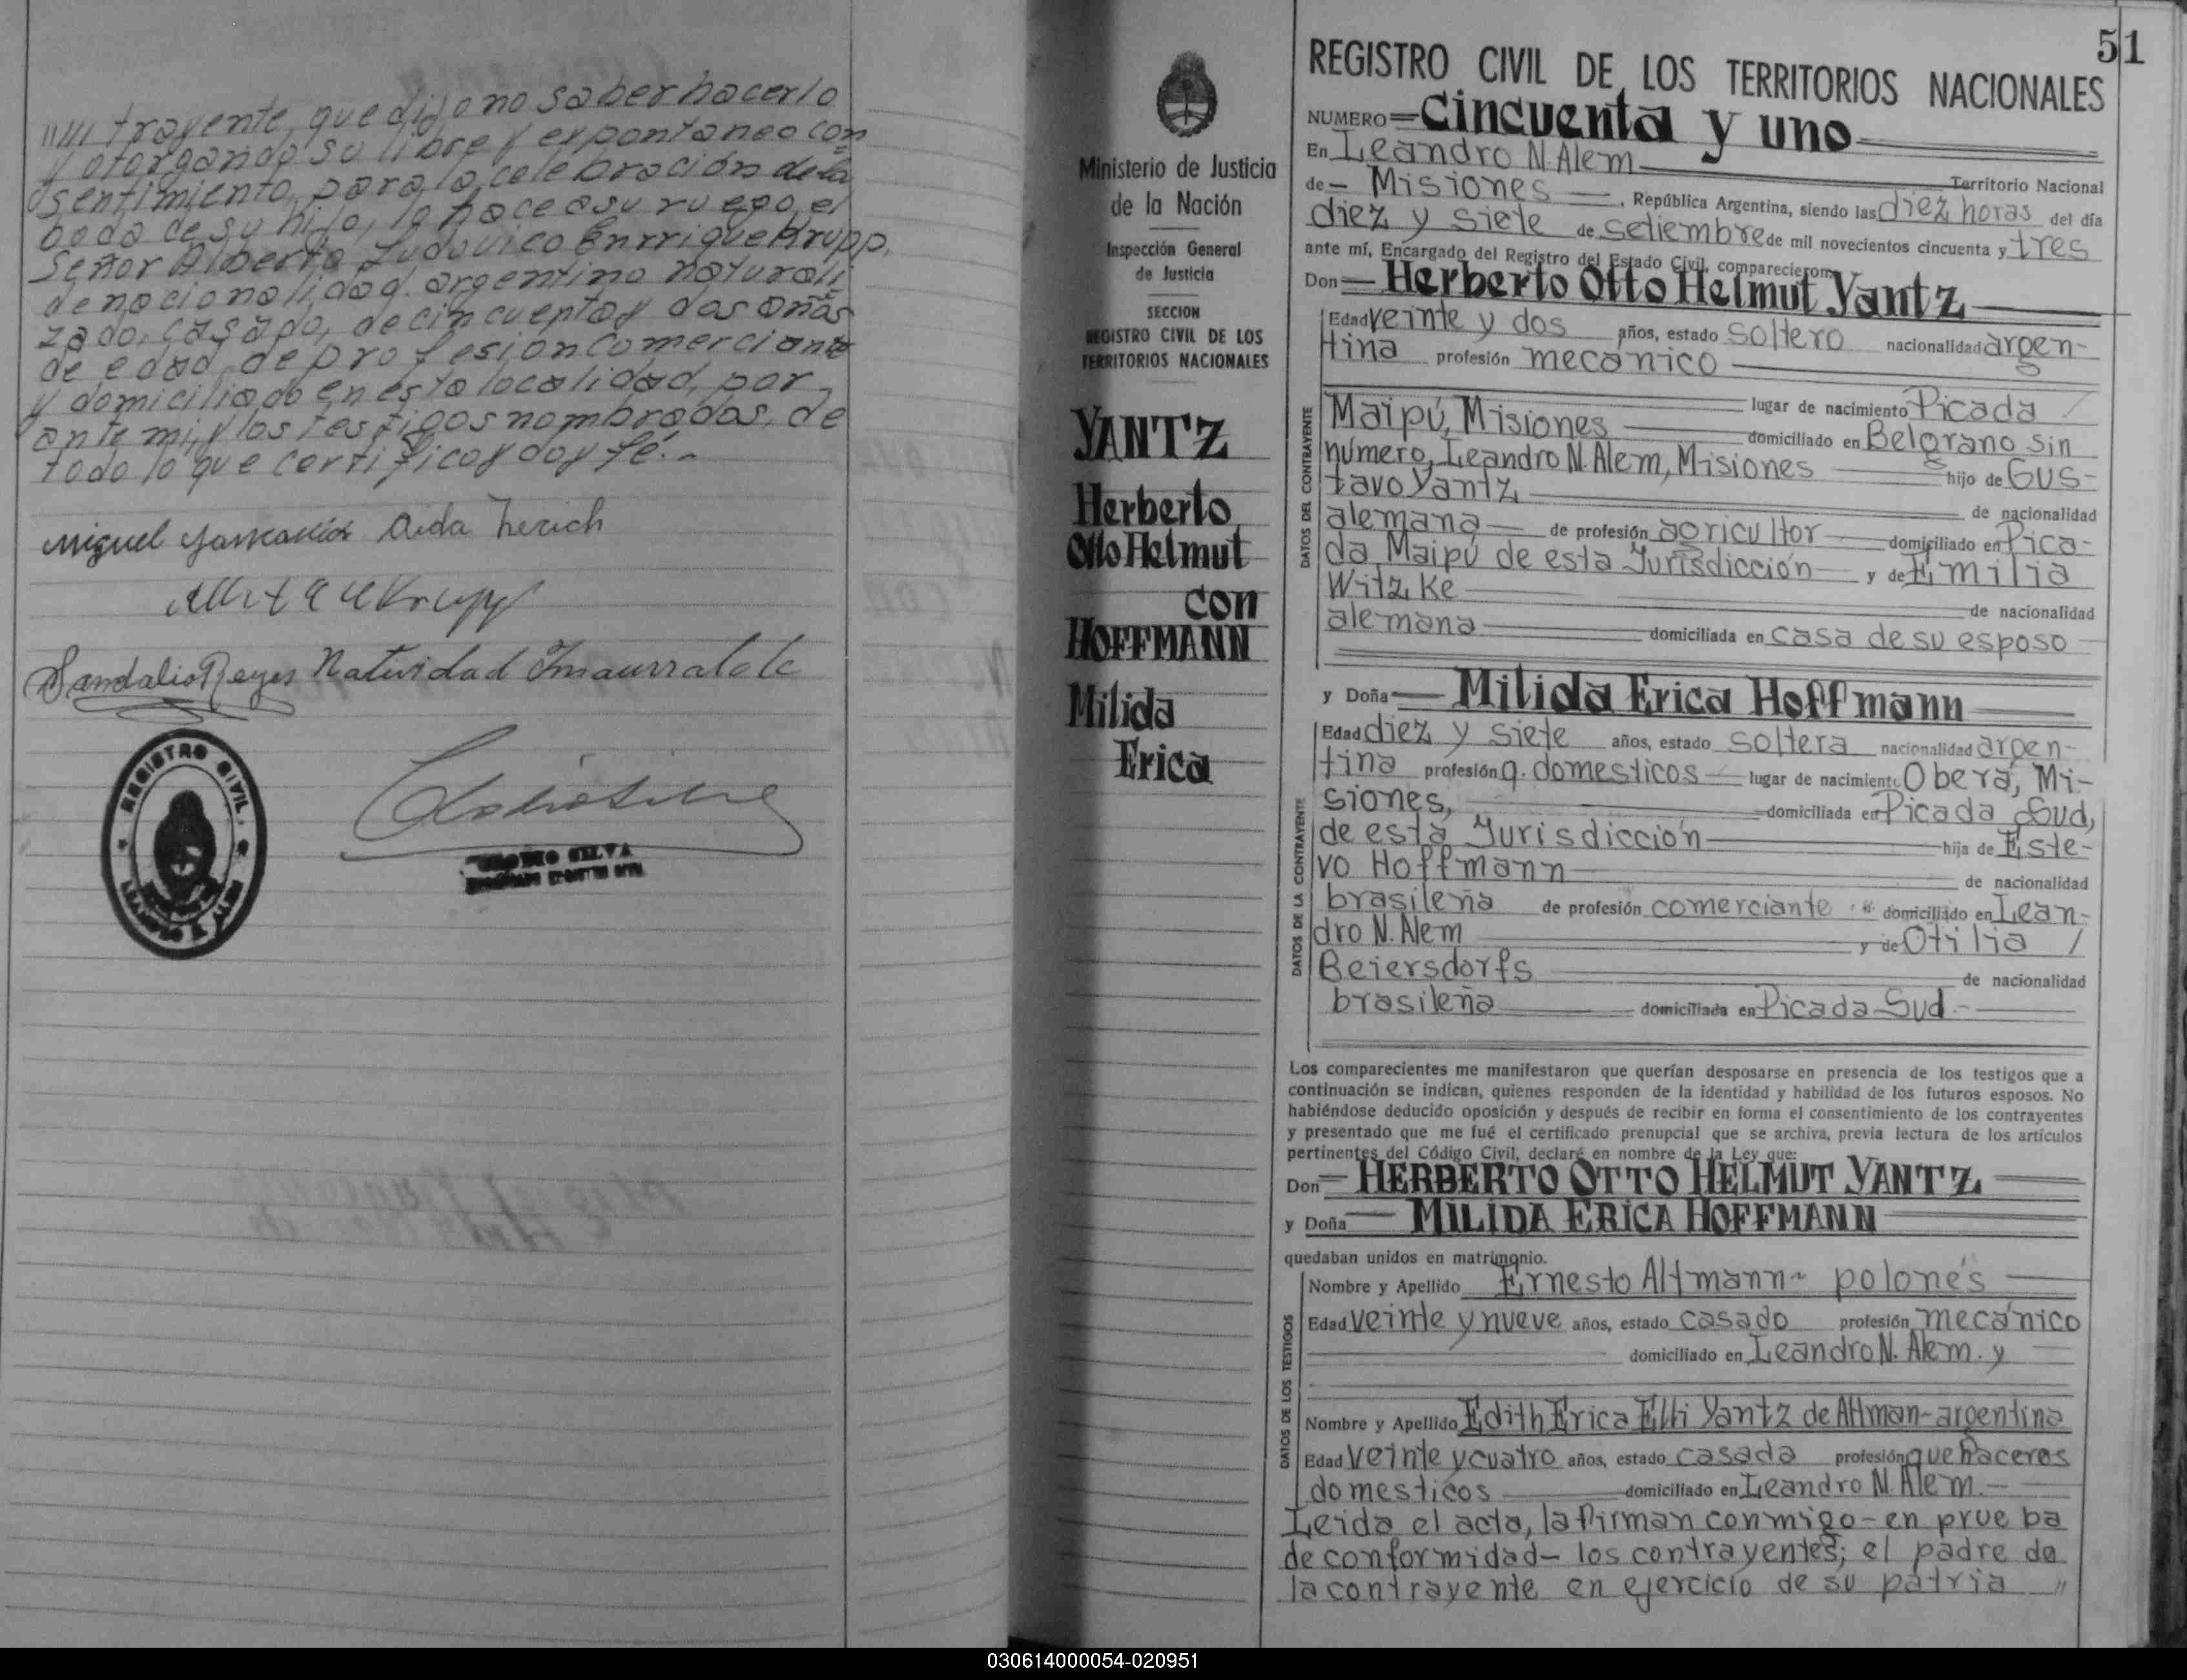 trayente, que dijo no saber hacerlo
y otorgando su libre y espontaneo con
sentimiento, para la celebración de la
boda de su hijo, lo hace a su ruego, el
Señor Alberto Ludovico Enrrique Krupp,
de nacionalidad argentino naturali
zado, casado, de cincuenta y dos años
de edad, de profesion comerciante
y domiciliado en esta localidad, por
ante mi, y los testigos nombrados, de
todo lo que certifico y doy fé.-
Miguel Aida Zerich
Krupp
Sandalio Reyes Natividad Insaurralde
REGISTRO CIVIL
SILVA
Ministerio de Justicia
de la Nación
Inspección General
de Justicia
SECCION
REGISTRO CIVIL DE LOS
TERRITORIOS NACIONALES
YANTZ
Herberto
Otto Helmut
con
HOFFMANN
Milida
Erica
51
REGISTRO CIVIL DE LOS TERRITORIOS NACIONALES
NUMERO Cincuenta y uno
En Leandro N. Alem Territorio Nacional
de Misiones, República Argentina, siendo las diez horas del día
diez y siete de setiembre de mil novecientos cincuenta y tres
ante mí, Encargado del Registro del Estado Civil, comparecieron:
Don Herberto Otto Helmut Yantz
Edad veinte y dos años, estado soltero nacionalidad argen-
tina profesión mecánico
lugar de nacimiento Picada
Maipú, Misiones domiciliado en Belgrano sin
número, Leandro N. Alem, Misiones hijo de Gus-
tavo Yantz de nacionalidad
alemana de profesión agricultor domiciliado en Pica-
da Maipú de esta Jurisdicción y de Emilia
Witzke de nacionalidad
alemana domiciliada en casa de su esposo
DATOS DEL CONTRAYENTE
y Doña Milida Erica Hoffmann
Edad diez y siete años, estado soltera nacionalidad argen-
tina profesión q. domesticos lugar de nacimiento Oberá, Mi-
siones, domiciliada en Picada Sud,
de esta Jurisdicción hija de Este-
vo Hoffmann de nacionalidad
brasileña de profesión comerciante domiciliado en Lean-
dro N. Alem y de Otilia
Beiersdorfs de nacionalidad
brasileña domiciliada en Picada Sud.-
DATOS DE LA CONTRAYENTE
Los comparecientes me manifestaron que querían desposarse en presencia de los testigos que a
continuación se indican, quienes responden de la identidad y habilidad de los futuros esposos. No
habiéndose deducido oposición y después de recibir en forma el consentimiento de los contrayentes
y presentado que me fué el certificado prenupcial que se archiva, previa lectura de los artículos
pertinentes del Código Civil, declaré en nombre de la Ley que:
Don HERBERTO OTTO HELMUT YANTZ
y Doña MILIDA ERICA HOFFMANN
quedaban unidos en matrimonio.
Nombre y Apellido Ernesto Altmann- polonés
Edad veinte y nueve años, estado casado profesión mecánico
domiciliado en Leandro N. Alem. y
DATOS DE LOS TESTIGOS
Nombre y Apellido Edith Erica Elli Yantz de Altman-argentina
Edad veinte y cuatro años, estado casada profesión quehaceres
domesticos domiciliado en Leandro N. Alem.-
Leida el acta, la firman conmigo-en prueba
de conformidad- los contrayentes; el padre de
la contrayente en ejercicio de su patria "
030614000054-020951